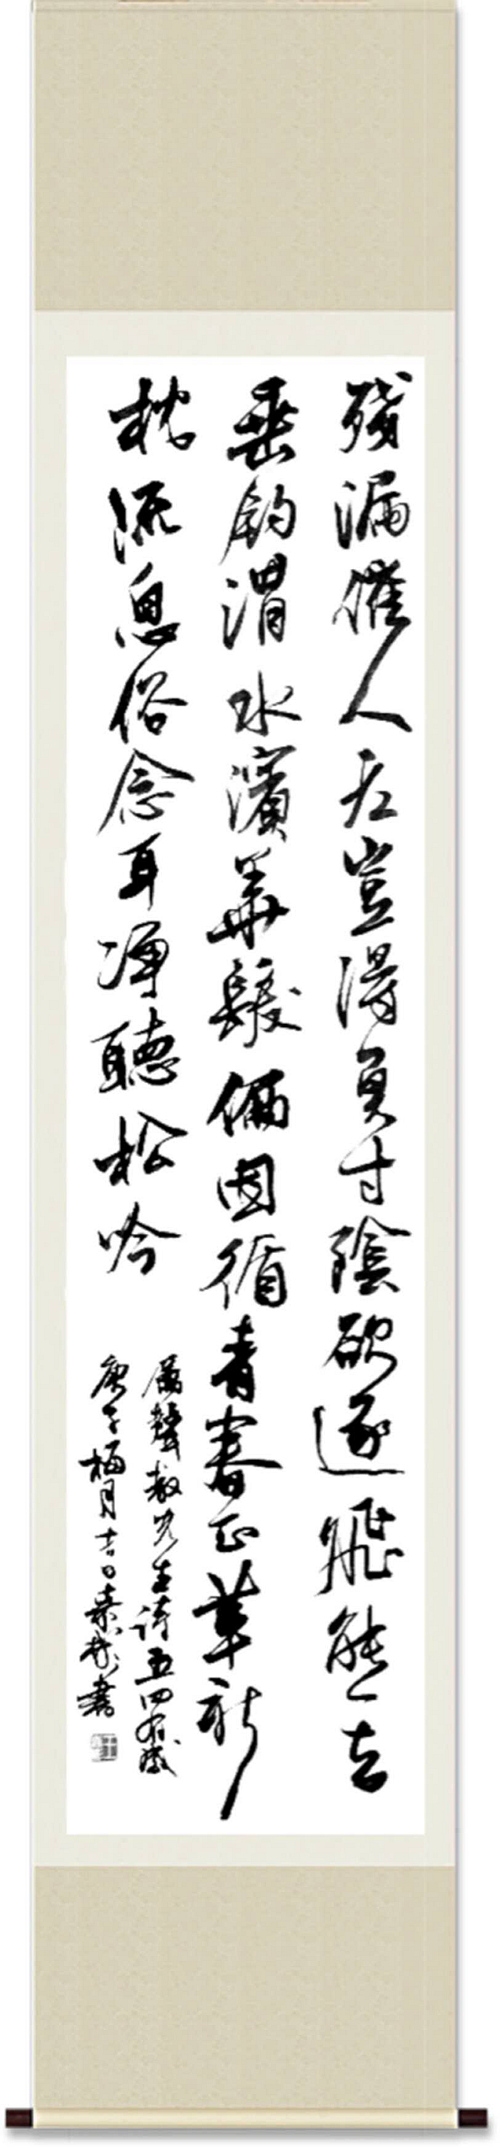 殘漏催人老豈得負寸陰欲逐飛熊去
垂釣渭水濱華髮倆因循青春正革新
枕流息俗念耳淨聽松吟
厲聲教先生詩五四有感
庚子梅月吉日書